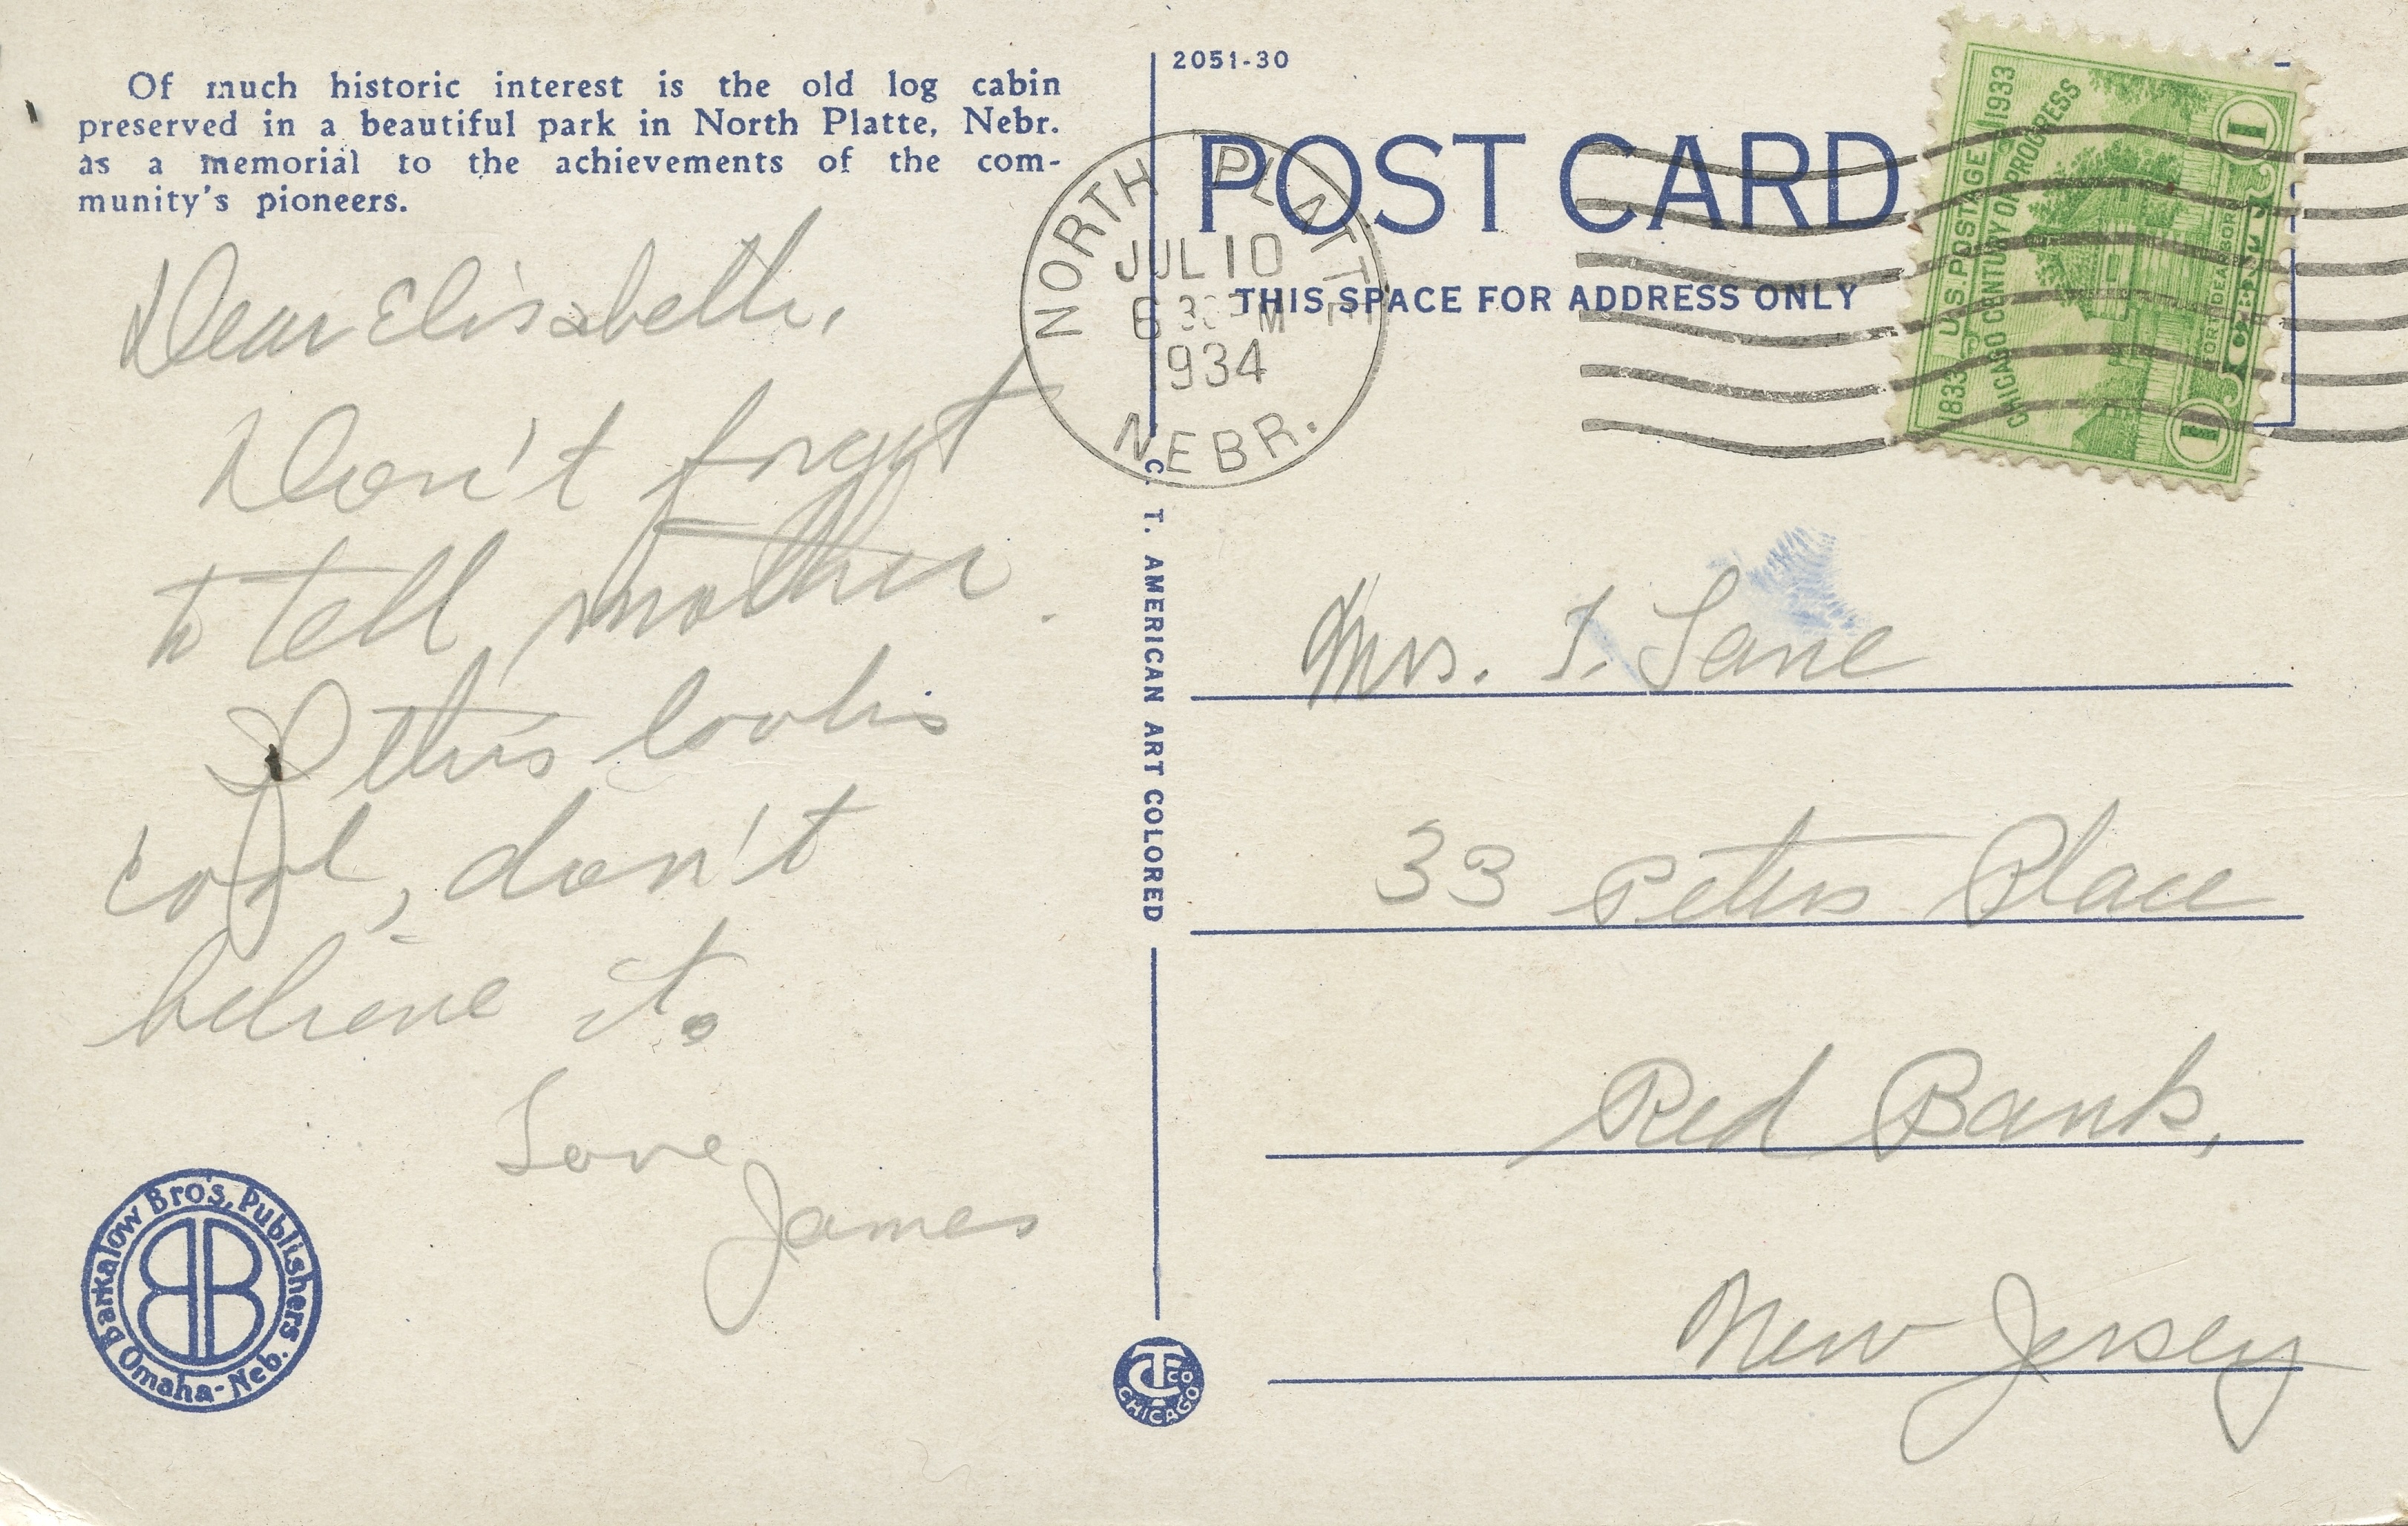 Of much historic interest is the old log cabin
preserved in a beautiful park in North Platte, Nebr.
as a memorial to the achievements of the com-
munity's pioneers.
Dear Elisabeth,
Don't forget
to tell mother.
If this looks
cool, don't
believe it.
Love
James
Barkalow Bro's, Publishers
Omaha-Neb.
BB
2051-30
POST CARD
THIS SPACE FOR ADDRESS ONLY
NORTH PLATTE
JUL 10
6 30 PM
934
NEBR.
1833 U.S. POSTAGE 1933
CHICAGO CENTURY OF PROGRESS
FORT DEARBORN
1 CENT 1
C. T. AMERICAN ART COLORED
CT CO
CHICAGO
Mrs. J. Lane
33 Peters Place
Red Bank,
New Jersey